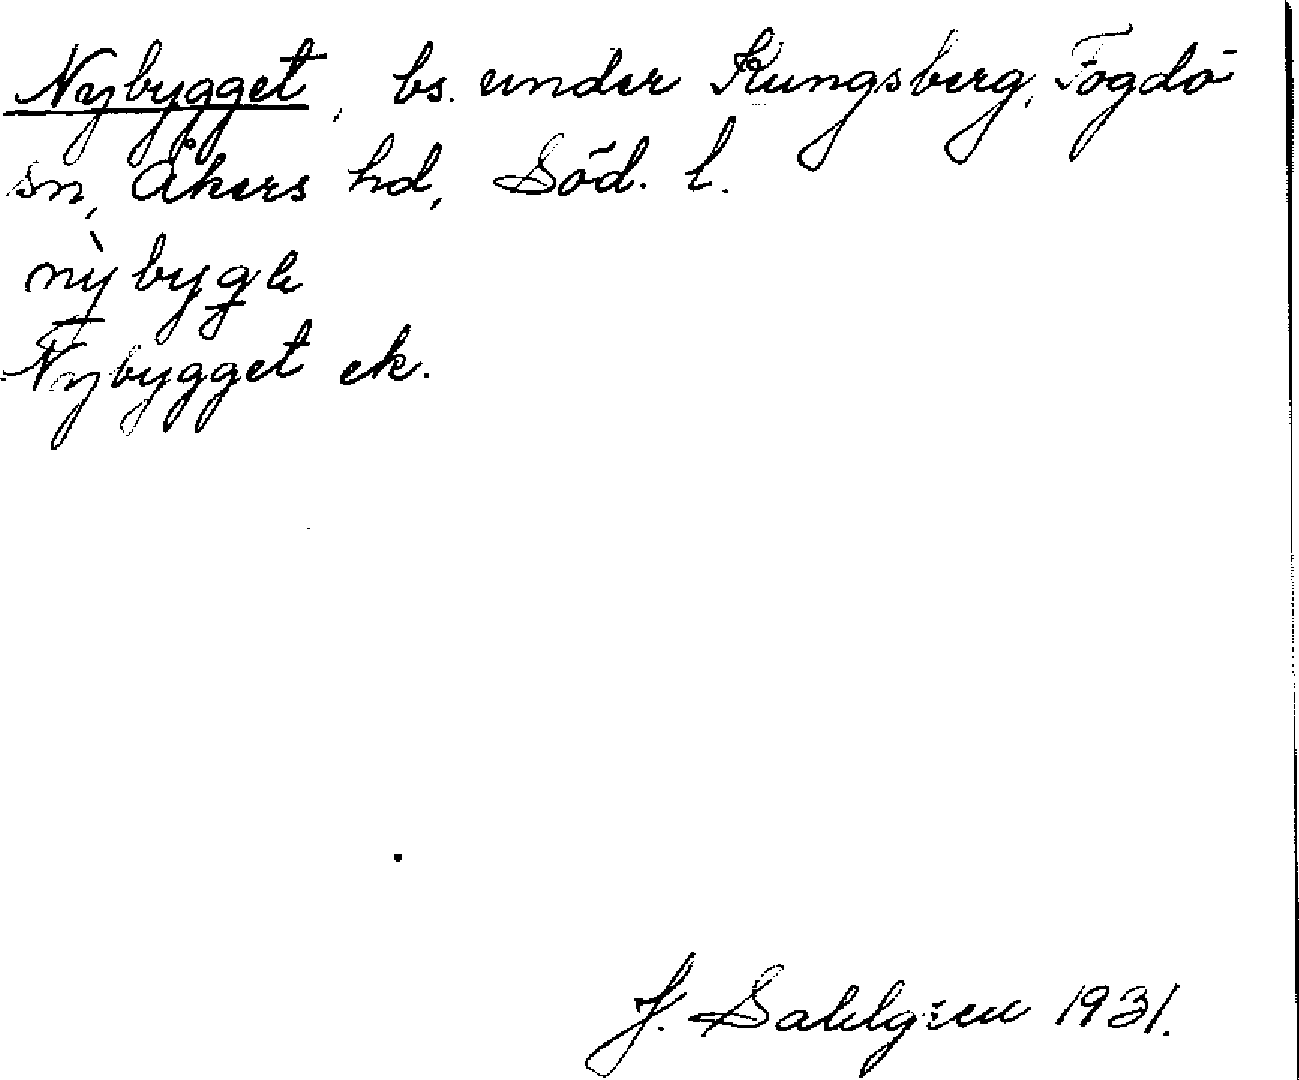 Nybygget, bs. under Kungsberg, Fogdö
sn, Åkers hd, Söd. l.
nỳbygge
Nybygget ek.
J. Sahlgren 1931.